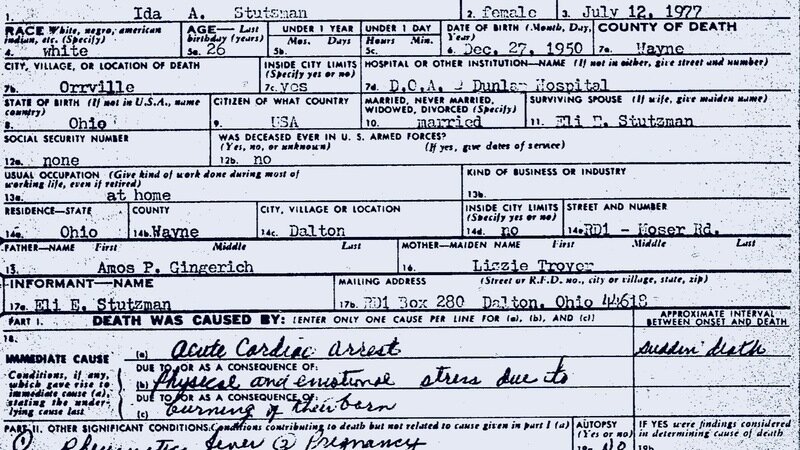 1. Ida A. Stutsman 2. female 3. July 12, 1977
RACE White, negro, american indian, etc. (Specify) AGE— Last birthday (years) UNDER 1 YEAR UNDER 1 DAY DATE OF BIRTH (Month, Day, Year) COUNTY OF DEATH
4. white 5a. 26 5b. Mos. Days 5c. Hours Min. 6. Dec. 27, 1950 7a. Wayne
CITY, VILLAGE, OR LOCATION OF DEATH INSIDE CITY LIMITS (Specify yes or no) HOSPITAL OR OTHER INSTITUTION—NAME (If not in either, give street and number)
7b. Orrville 7c. yes 7d. D.O.A. Dunlap Hospital
STATE OF BIRTH (If not in U.S.A., name country) CITIZEN OF WHAT COUNTRY MARRIED, NEVER MARRIED, WIDOWED, DIVORCED (Specify) SURVIVING SPOUSE (If wife, give maiden name)
8. Ohio 9. USA 10. married 11. Eli E. Stutzman
SOCIAL SECURITY NUMBER WAS DECEASED EVER IN U. S. ARMED FORCES?
(Yes, no, or unknown) (If yes, give dates of service)
12a. none 12b. no
USUAL OCCUPATION (Give kind of work done during most of working life, even if retired) KIND OF BUSINESS OR INDUSTRY
13a. at home 13b.
RESIDENCE—STATE COUNTY CITY, VILLAGE OR LOCATION INSIDE CITY LIMITS (Specify yes or no) STREET AND NUMBER
14a. Ohio 14b. Wayne 14c. Dalton 14d. no 14e. RD1 - Moser Rd.
FATHER—NAME First Middle Last MOTHER—MAIDEN NAME First Middle Last
15. Amos P. Gingerich 16. Lizzie Troyer
INFORMANT—NAME MAILING ADDRESS (Street or R.F.D. no., city or village, state, zip)
17a. Eli E. Stutzman 17b. RD1 Box 280 Dalton, Ohio 44618
PART I. DEATH WAS CAUSED BY: [ENTER ONLY ONE CAUSE PER LINE FOR (a), (b), AND (c)] APPROXIMATE INTERVAL BETWEEN ONSET AND DEATH
18.
IMMEDIATE CAUSE (a) Acute Cardiac Arrest sudden death
Conditions, if any, which gave rise to immediate cause (a), stating the underlying cause last
DUE TO, OR AS A CONSEQUENCE OF:
(b) Physical and emotional stress due to
DUE TO, OR AS A CONSEQUENCE OF:
(c) burning of their barn
PART II. OTHER SIGNIFICANT CONDITIONS: Conditions contributing to death but not related to cause given in part I (a) AUTOPSY (Yes or no) IF YES were findings considered in determining cause of death
① Rheumatic fever ② Pregnancy 19a. NO 19b.